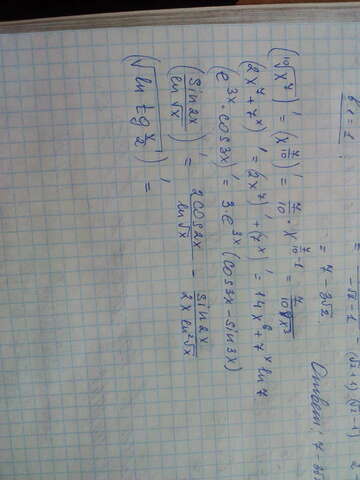 61 = 1 !
= -√2 - 1 - (√2+1)(√2-1)
= 7 - 3√2
Ответ: 7 -
(¹⁰√x⁷)' = (x^(7/10))' = 7/10 · x^(7/10 - 1) = 7/(10 ¹⁰√x³)
(2x⁷ + 7ˣ)' = (2x⁷)' + (7ˣ)' = 14x⁶ + 7ˣ ln 7
(e³ˣ · cos3x)' = 3·e³ˣ (cos3x - sin3x)
(sin2x / ln√x)' = 2cos2x / ln√x - sin2x / 2x ln²√x
(√(ln tg x/2))' =